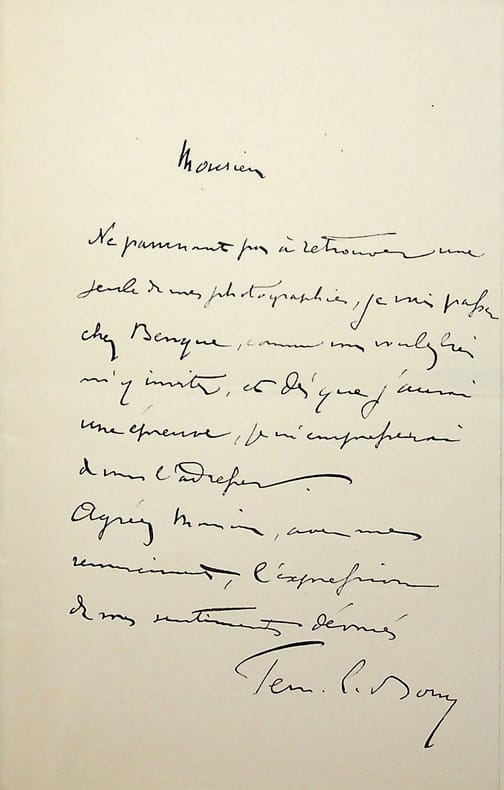 Monsieur
Ne parvenant pas à retrouver une
seule de mes photographies, je vais passer
chez Benque, comme vous voulez bien
m'y inviter, et dès que j'aurai
une épreuve, je m'empresserai
de vous l'adresser.
Agréez Monsieur, avec mes
remerciements, l'expression
de mes sentiments dévoués
Fern.